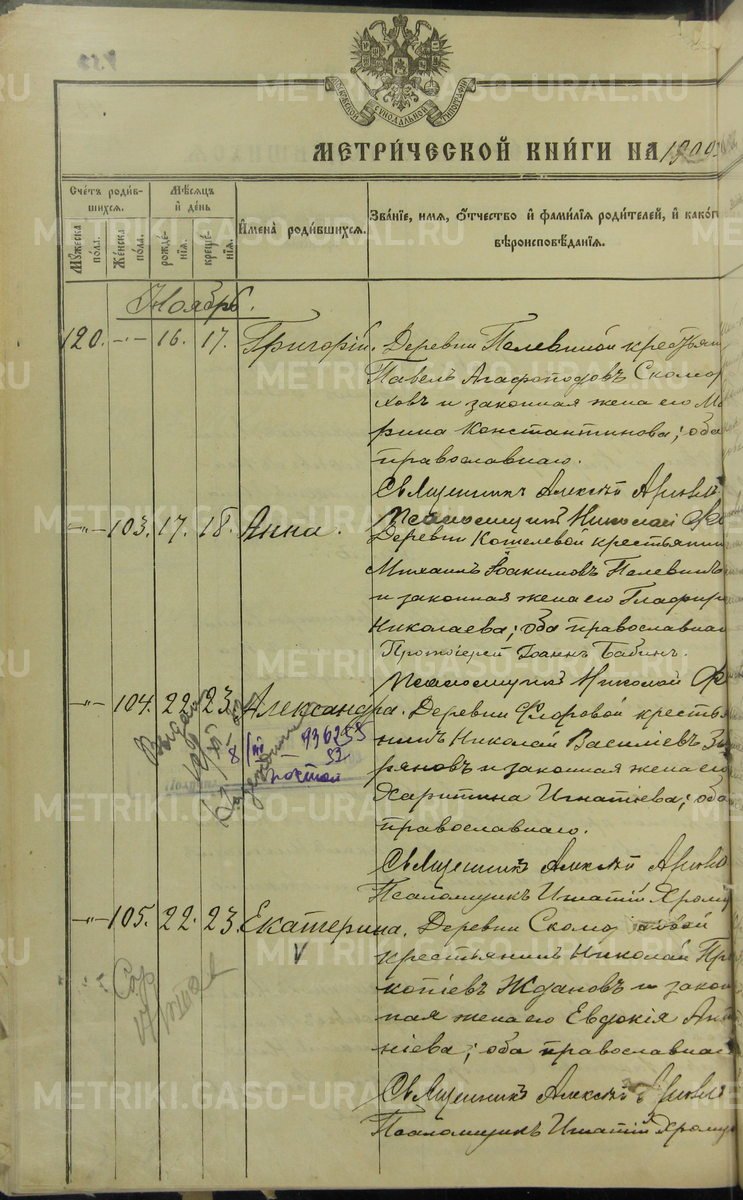 МОСКОВСКОЙ СѴНОДАЛЬНОЙ ТИПОГРАФІИ
МЕТРИ́ЧЕСКОЙ КНИ́ГИ НА 1909
Счетъ роди́в-
шихся.
Мꙋжеска
по́ла.
Же́нска
по́ла.
Мѣсяцъ
и҆ де́нь
рожде́-
нія.
креще́-
нія.
И҆мена̀ роди́вшихся.
Зва́ніе, имя, о́тчество и҆ фами́лія роди́телей, и҆ како́г
вѣроисповѣ́данія.
Ноябрь.
120. -"- 16. 17. Григорій. Деревни Полевиной крестьян
Павелъ Агафоподовъ Скомор
ховъ и законная жена его Ма
рина Константинова; оба
православнаго.
Священникъ Алексѣй
Псаломщикъ Николай
-"- 103. 17. 18. Анна. Деревни Кошелевой крестьянин
Михаилъ Іоакимовъ Полевинъ
и законная жена его Глафира
Николаева; оба православнаго
Протоіерей Іоаннъ Бабинъ.
Псаломщикъ Николай
-"- 104. 22. 23. Александра. Деревни Фларовой крестья
нинъ Николай Василіевъ Зы
ряновъ и законная жена его
Харитина Игнатіева; оба
православнаго.
936255
почтой
Священникъ Алексѣй
Псаломщикъ Игнатій Хром
-"- 105. 22. 23. Екатерина. Деревни
V
крестьянинъ Николай Про
копіевъ Ждановъ и закон
ная жена его Евдокія
ніева; оба православнаго
Священникъ Алексѣй
Псаломщикъ Игнатій Хром
METRIKI.GASO-URAL.RU